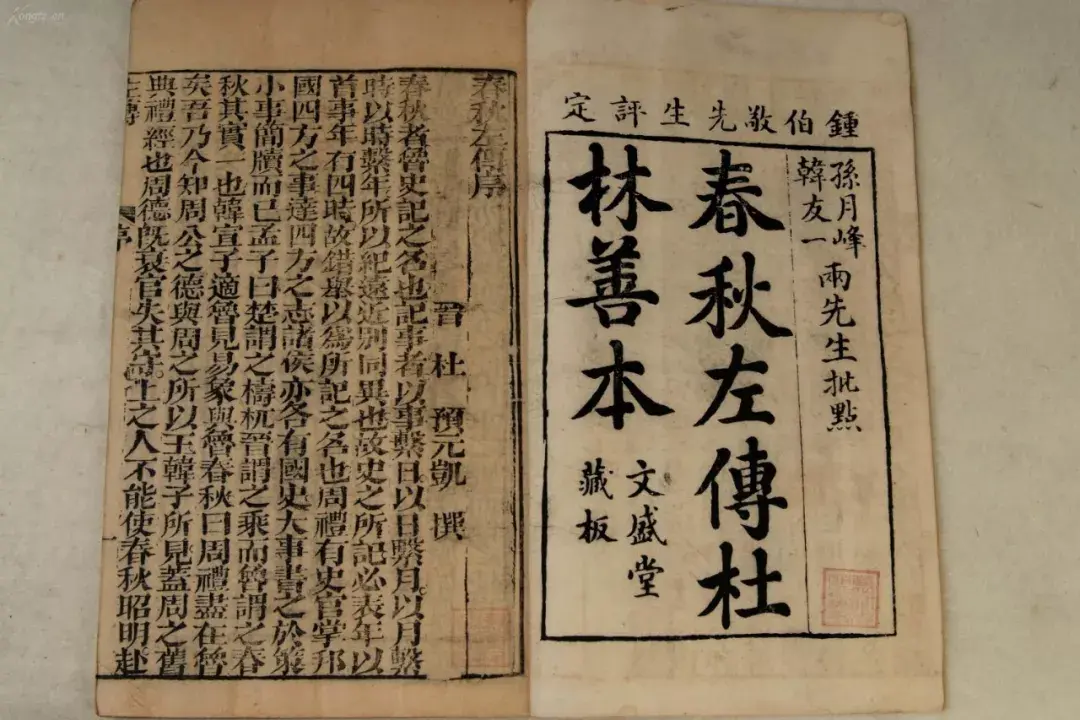 鍾伯敬先生評定
孫月峰
韓友一
兩先生批點
春秋左傳杜
林善本
文盛堂
藏板
春秋左傳序
晉 杜 預元凱 撰
春秋者魯史記之名也記事者以事繫日以日繫月以月繫
時以時繫年所以紀遠近別同異也故史之所記必表年以
首事年有四時故錯舉以爲所記之名也周禮有史官掌邦
國四方之事達四方之志諸侯亦各有國史大事書之於策
小事簡牘而已孟子曰楚謂之檮杌晉謂之乘而魯謂之春
秋其實一也韓宣子適魯見易象與魯春秋曰周禮盡在魯
矣吾乃今知周公之德與周之所以王韓子所見蓋周之舊
典禮經也周德旣衰官失其守上之人不能使春秋昭明赴
左傳
序
一